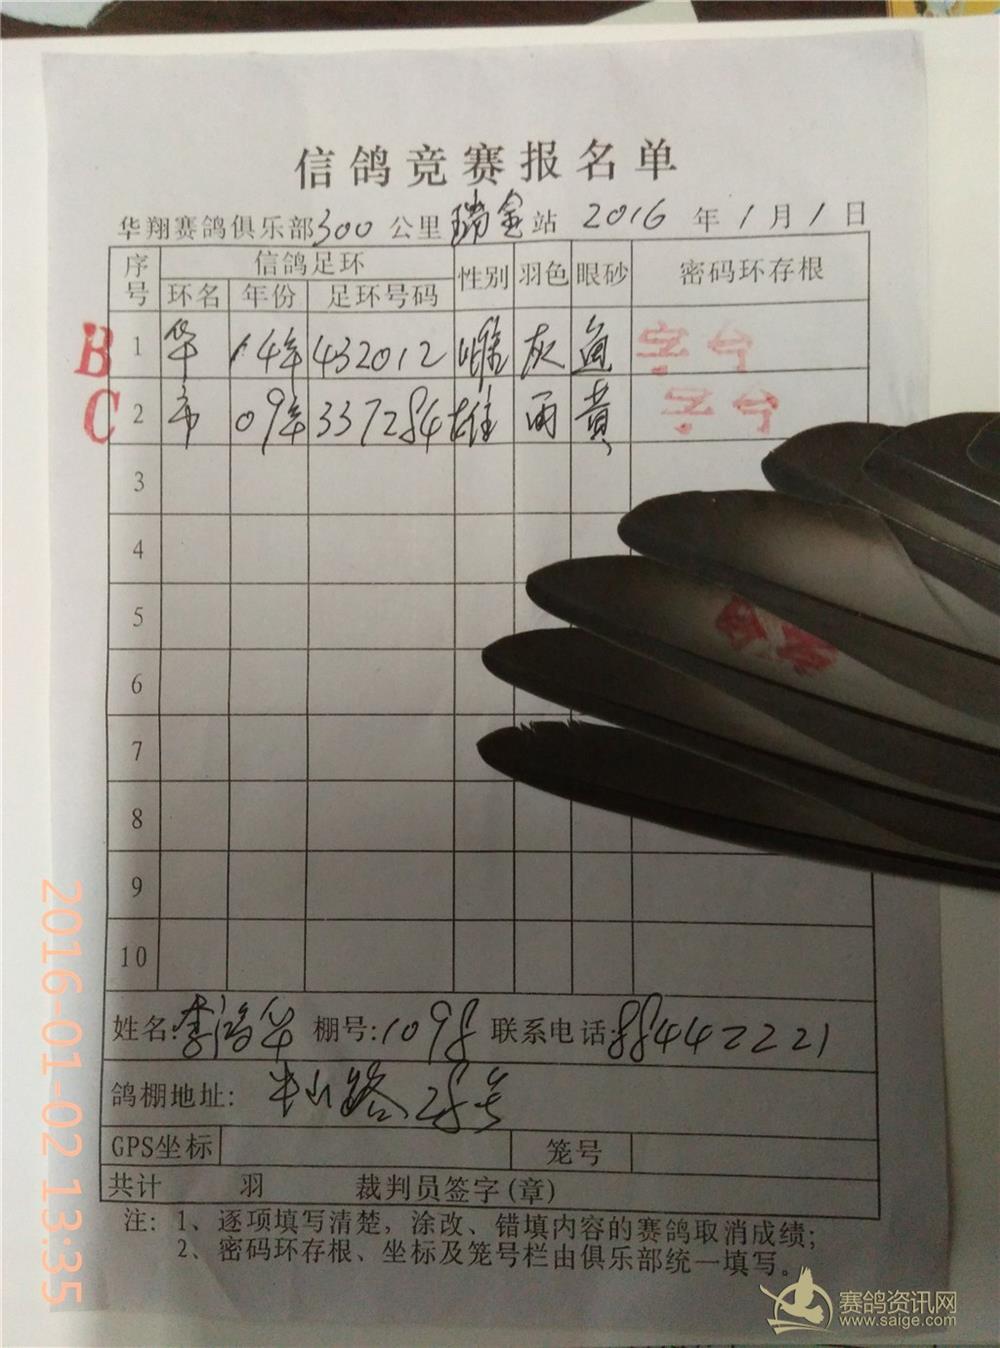 信鸽竞赛报名单
华翔赛鸽俱乐部300公里瑞金站 2016 年1月1日
序号 信鸽足环 性别 羽色 眼砂 密码环存根
环名 年份 足环号码
B 1 华 14年 432012 雌 灰 鱼 字号
C 2 市 09年 337284 雄 雨 黄 字号
3
4
5
6
7
8
9
10
姓名:李鸿华 棚号:1098 联系电话:88442221
鸽棚地址: 半山路28号
GPS坐标 笼号
共计 羽 裁判员签字(章)
注: 1、逐项填写清楚，涂改、错填内容的赛鸽取消成绩；
2、密码环存根、坐标及笼号栏由俱乐部统一填写。
2016-01-02 13:35
赛鸽资讯网
www.saige.com